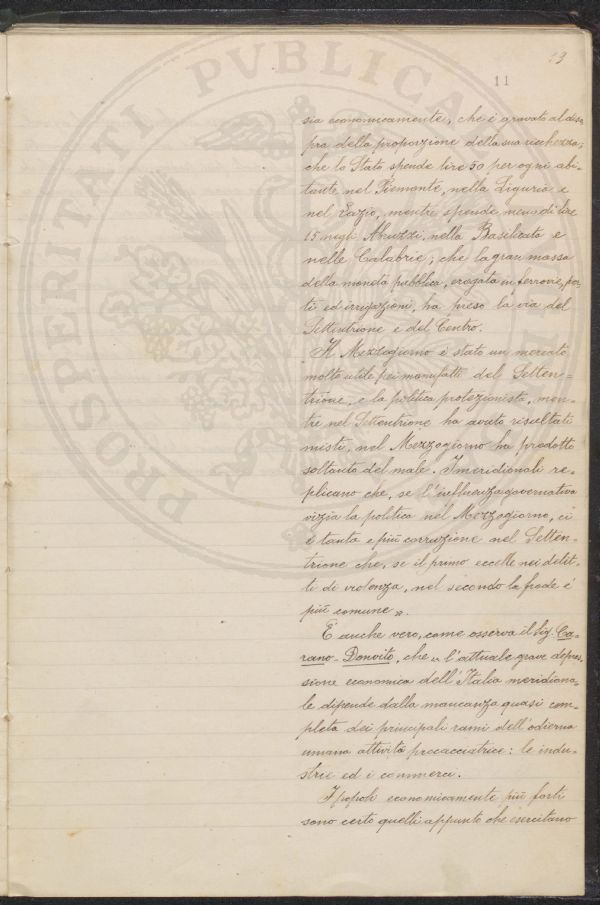 13
11
PROSPERITATI PVBLICAE
sia economicamente, che è gravato al diso-
pra della proporzione della sua ricchezza;
che lo Stato spende lire 50 per ogni abi-
tante nel Piemonte, nella Liguria e
nel Lazio, mentre spende meno di lire
15 negli Abruzzi, nella Basilicata e
nelle Calabrie; che la gran massa
della moneta pubblica, erogata in ferrovie, por-
ti ed irrigazioni, ha preso la via del
Settentrione e del Centro.
Il Mezzogiorno è stato un mercato
molto utile pei manufatti del Setten-
trione, e la politica protezionista, men-
tre nel Settentrione ha avuto risultati
misti, nel Mezzogiorno ha prodotto
soltanto del male. I meridionali re-
plicano che, se l'influenza governativa
vizia la politica nel Mezzogiorno, ci
è tanta e più corruzione nel Setten-
trione che, se il primo eccelle nei delit-
ti di violenza, nel secondo la frode è
più comune ».
È anche vero, come osserva il Sig. Ca-
rano-Donvito, che « l'attuale grave depres-
sione economica dell'Italia meridiona-
le dipende dalla mancanza quasi com-
pleta dei principali rami dell'odierna
umana attività procacciatrice: le indu-
strie ed i commerci.
I popoli economicamente più forti
sono certo quelli appunto che esercitano